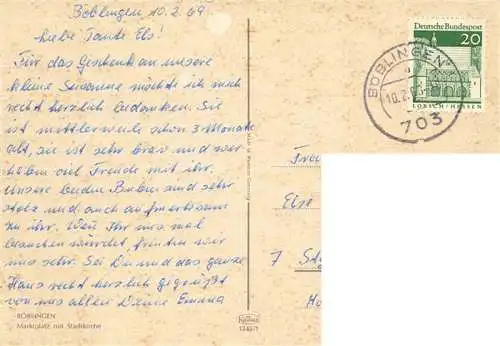 Böblingen 10.2.69.
Liebe Tante Els!
Für das Geschenk an unsere
kleine Susanne möchte ich mich
recht herzlich bedanken. Sie
ist mittlerweile schon 3 Monate
alt, sie ist sehr brav und wir
haben viel Freude mit ihr.
Unsere beiden Buben sind sehr
stolz und auch aufmerksam
zu ihr. Wenn Ihr uns mal
besuchen würdet, freuten wir
uns sehr. Sei Du und das ganze
Haus recht herzlich gegrüßt
von uns allen Deine Emma
BÖBLINGEN
Marktplatz mit Stadtkirche
Deutsche Bundespost
20
LORSCH/HESSEN
BÖBLINGEN
a
10.2.69
703
Else
7
1243/1